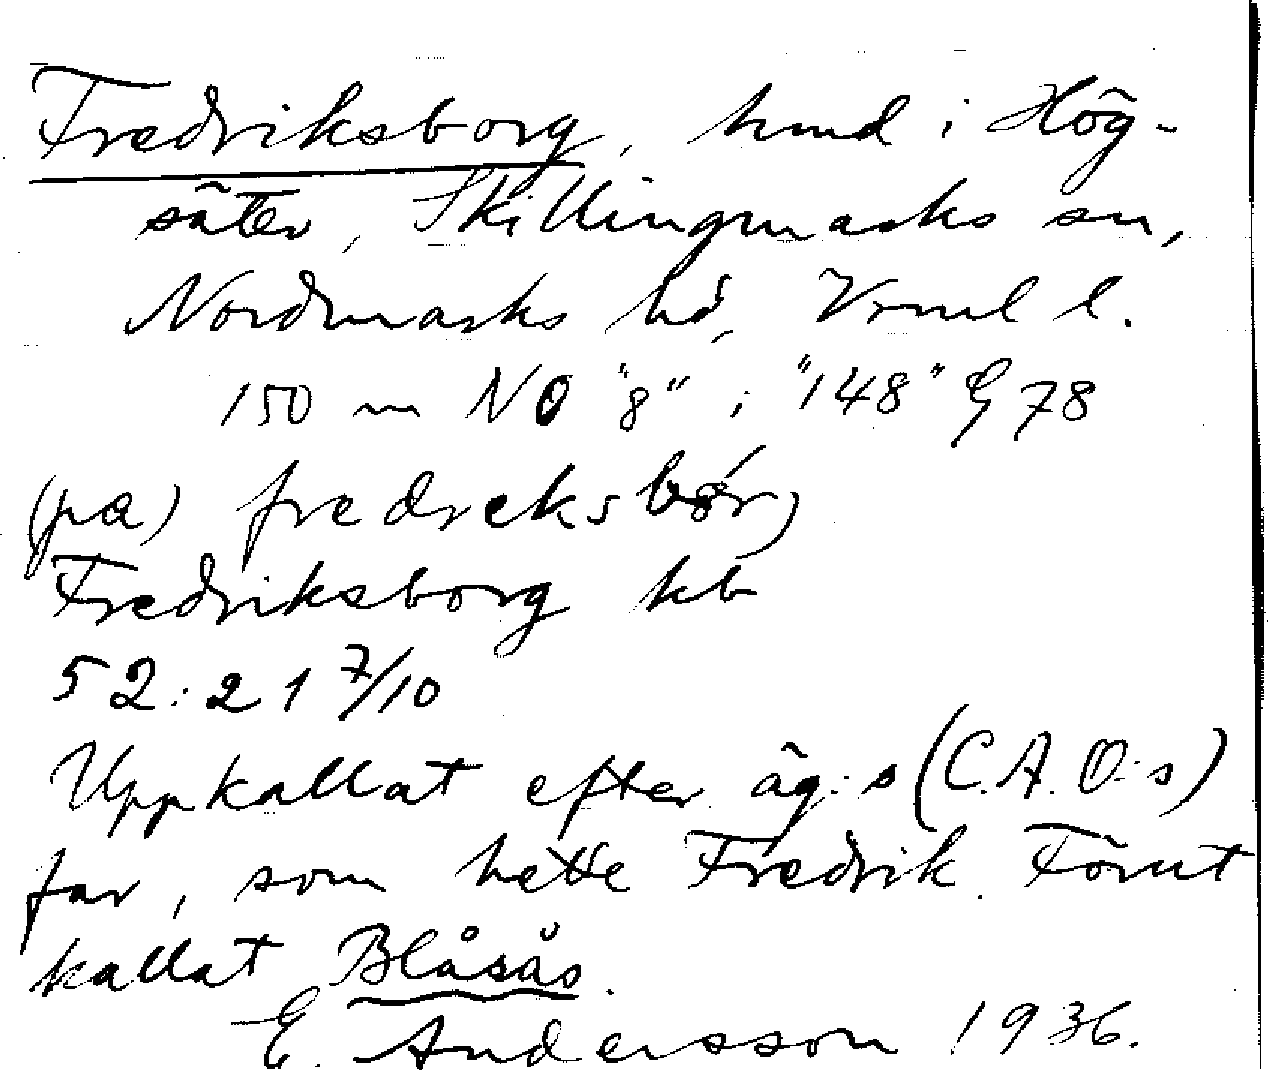 Fredriksborg, hmd i Hög-
säter, Skillingmarks sn,
Nordmarks hd, Vrml l.
150 m NO "8" i "148" G 78
(pa) fredreksbör,
Fredriksborg kb
52:21 7/10
Uppkallat efter äg:s (C.A.O:s)
far, som hette Fredrik. Förut
kallat Blåsås.
E. Andersson 1936.